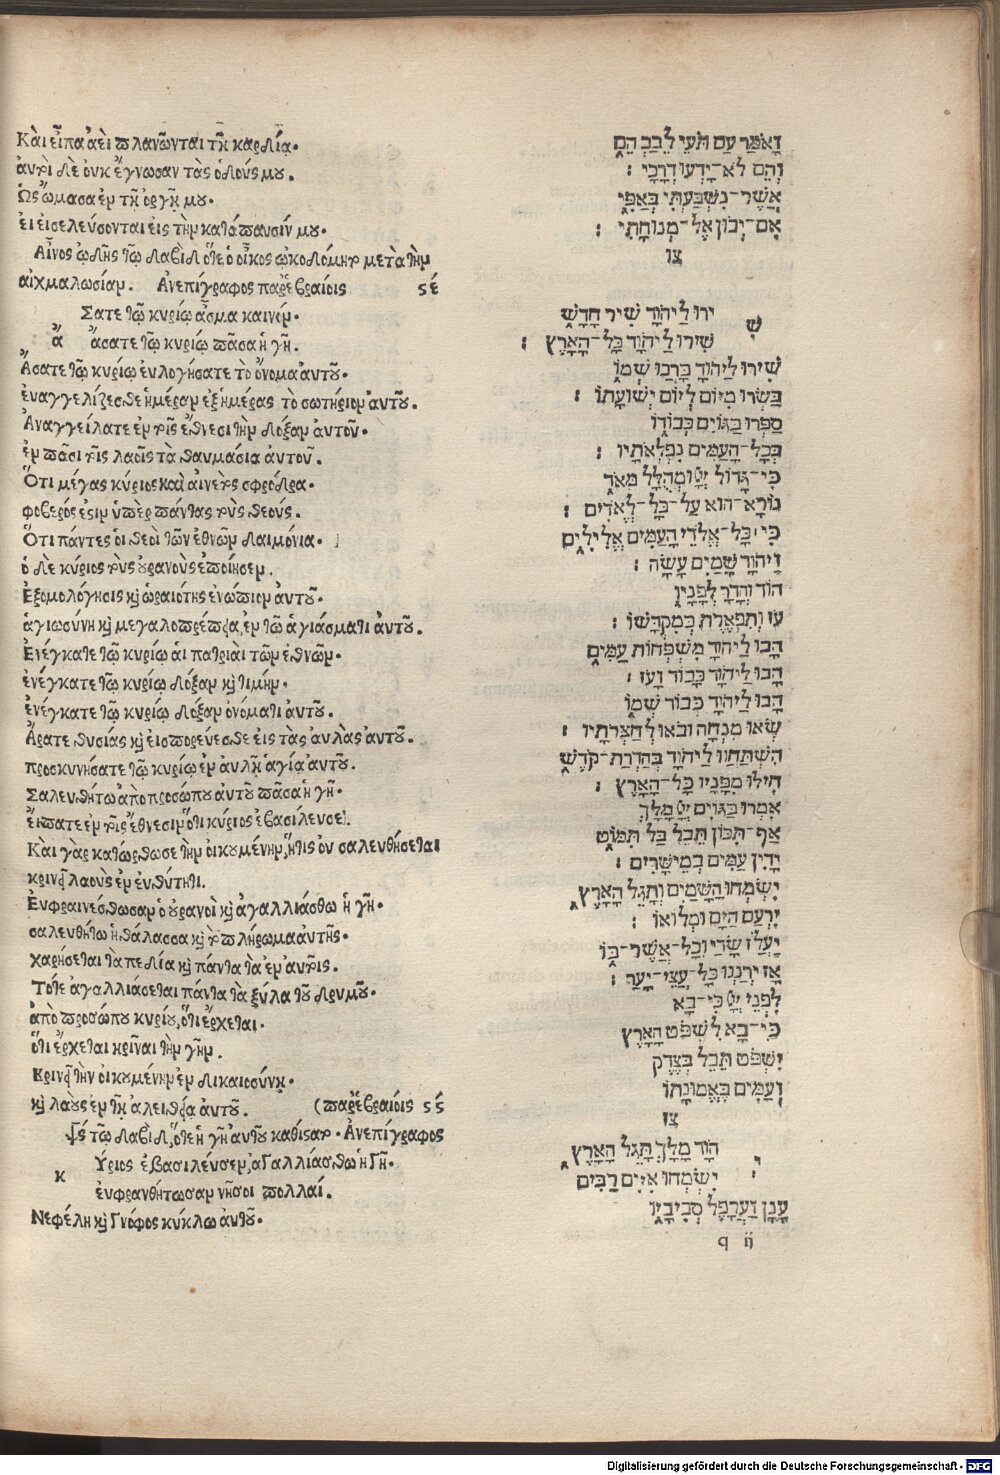 Κὰι εἶπα ἀεὶ πλανῶνται τῆ καρδία.
ἀυτὸι δὲ ὀυκ ἔγνωσαν τὰς ὁδούς μου.
Ὡς ὤμοσα ἐν τῆ ὀργῆ μου.
ἐι ἐισελεύσονται ἐις τὴν κατάπαυσίν μου.
Αἶνος ὠδῆς τῶ δαβὶδ ὅτε ὁ οἶκος ὠκοδόμητο μετὰ τὴν
αἰχμαλωσίαν. Ανεπίγραφος παρ' ἑβραίοις ςέ
Σατε τῶ κυρίω ἆσμα καινόν.
ἄ ἄσατε τῶ κυρίω πᾶσα ἡ γῆ.
Ἄσατε τῶ κυρίω ἐυλογήσατε τὸ ὄνομα ἀυτοῦ.
ἐυαγγελίζεσθε ἡμέραν ἐξ ἡμέρας τὸ σωτήριον ἀυτοῦ.
Ἀναγγείλατε ἐν τοῖς ἔθνεσι τὴν δόξαν ἀυτοῦ.
ἐν πᾶσι τοῖς λαοῖς τὰ θαυμάσια ἀυτοῦ.
Ὅτι μέγας κύριος καὶ αἰνετὸς σφρόδρα.
φοβερός ἐςιν ὑπὲρ πάντας τοὺς θεούς.
Ὅτι πάντες ὁι θεὸι τῶν ἐθνῶν δαιμόνια.
ὁ δὲ κύριος τοὺς ουρανοὺς ἐποίησεν.
Ἐξομολόγησις καὶ ὡραιότης ἐνώπιον ἀυτοῦ.
ἁγιωσύνη καὶ μεγαλοπρέπεια ἐν τῶ ἁγιάσματι ἀυτοῦ.
Ἐνέγκατε τῶ κυρίω ἁι πατριὰι τῶν ἐθνῶν.
ἐνέγκατε τῶ κυρίω δόξαν καὶ τιμήν.
ἐνέγκατε τῶ κυρίω δόξαν ὀνόματι ἀυτοῦ.
Ἄρατε θυσίας καὶ ἐισπορεύεσθε ἐις τὰς ἀυλὰς ἀυτοῦ.
προσκυνήσατε τῶ κυρίω ἐν ἀυλῆ ἁγία ἀυτοῦ.
Σαλευθήτω ἀπὸ προσώπου ἀυτοῦ πᾶσα ἡ γῆ.
ἔιπατε ἐν τοῖς ἔθνεσιν ὅτι κύριος ἐβασίλευσε.
Κὰι γὰρ κατώρθωσε τὴν ὀικουμένην, ἥτις ὀυ σαλευθήσεται
κρινεῖ λαοὺς ἐν ἐυθύτητι.
Ἐυφραινέσθωσαν ὁ ὀυρανοὶ καὶ ἀγαλλιάσθω ἡ γῆ.
σαλευθήτω ἡ θάλασσα καὶ τὸ πλήρωμα ἀυτῆς.
χαρήσεται τὰ πεδία καὶ πάντα τὰ ἐν ἀυτοῖς.
Τότε ἀγαλλιάσεται πάντα τὰ ξύλα τοῦ δρυμοῦ.
ἀπὸ προσώπου κυρίου, ὅτι ἔρχεται.
ὅτι ἔρχεται κρῖναι τὴν γῆν.
κρινεῖ τὴν ὀικουμένην ἐν δικαιοσύνη.
καὶ λαοὺς ἐν τῆ ἀλειθεία ἀυτοῦ. (παρ' ἑβραίοις ςς
ψς τῶ δαβὶδ, ὅτε ἡ γῆ ἀυτοῦ καθίσατο. Ἀνεπίγραφος
κ Ύριος ἐβασιλέυσεν, ἀγαλλιάσθω ἡ γῆ.
ἐυφρανθήτωσαν νῆσοι πολλαί.
Νεφέλη καὶ γνόφος κύκλω ἀυτοῦ.
וָאֹמַר עַם תֹּעֵי לֵבָב הֵם
וְהֵם לֹא־יָדְעוּ דְרָכָי :
אֲשֶׁר־נִשְׁבַּעְתִּי בְאַפִּי
אִם־יְבֹון אֶל־מְנוּחָתִי :
צו
שׁ ירוּ לַיהוָֹד שִׁיר חָדָשׁ
שִׁירוּ לַיהוָֹד כָּל־הָאָרֶץ :
שִׁירוּ לַיהוָֹד בָּרְכוּ שְׁמוֹ
בַּשְּׂרוּ מִיּוֹם לְיוֹם יְשׁוּעָתוֹ :
סַפְּרוּ בַגּוֹיִם כְּבוֹדוֹ
בְּכָל־הָעַמִּים נִפְלְאֹתָיו :
כִּי־גָדוֹל יְיָ וּמְהֻלָּל מְאֹד
נוֹרָא־הוּא עַל־כָּל־אֱלֹדִים :
כִּי כָּל־אֱלֹדֵי הָעַמִּים אֱלִילִים
וַיהוָֹד שָׁמַיִם עָשָׂה :
הוֹד וְהָדָר לְפָנָיו
עֹז וְתִפְאֶרֶת בְּמִקְדָּשׁוֹ :
הָבוּ לַיהוָֹד מִשְׁפְּחוֹת עַמִּים
הָבוּ לַיהוָֹד כָּבוֹד וָעֹז :
הָבוּ לַיהוָֹד כְּבוֹד שְׁמוֹ
שְׂאוּ מִנְחָה וּבֹאוּ לְחַצְרֹתָיו :
הִשְׁתַּחֲווּ לַיהוָֹד בְּהַדְרַת־קֹדֶשׁ
חִילוּ מִפָּנָיו כָּל־הָאָרֶץ :
אִמְרוּ בַגּוֹיִם יְיָ מָלָךְ
אַף־תִּכּוֹן תֵּבֵל בַּל תִּמּוֹט
יָדִין עַמִּים בְּמֵישָׁרִים :
יִשְׂמְחוּ הַשָּׁמַיִם וְתָגֵל הָאָרֶץ
יִרְעַם הַיָּם וּמְלוֹאוֹ :
יַעֲלֹז שָׂדַי וְכָל־אֲשֶׁר־בּוֹ
אָז יְרַנְּנוּ כָּל־עֲצֵי־יָעַר :
לִפְנֵי יְיָ כִּי־בָא
כִּי־בָא לִשְׁפֹּט הָאָרֶץ
יִשְׁפֹּט תֵּבֵל בְּצֶדֶק
וְעַמִּים בֶּאֱמוּנָתוֹ
צז
י הוָֹד מָלָךְ תָּגֵל הָאָרֶץ
יִשְׂמְחוּ אִיִּים רַבִּים
עָנָן וַעֲרָפֶל סְבִיבָיו
q ij
Digitalisierung gefördert durch die Deutsche Forschungsgemeinschaft - DFG